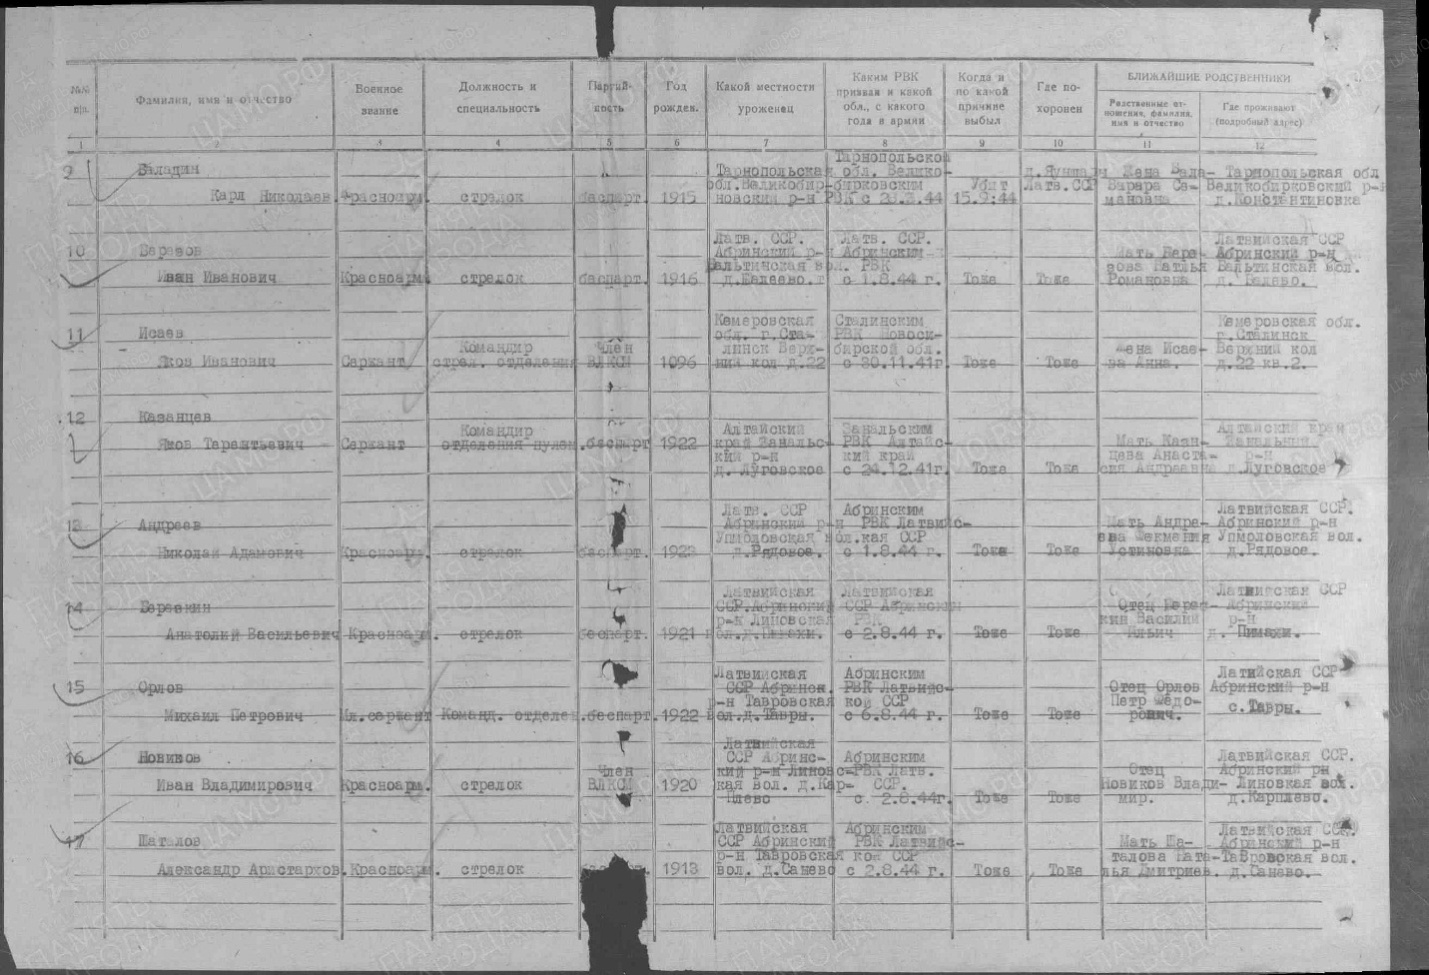 №№ п/п.
Фамилия, имя и отчество
Военное звание
Должность и специальность
Партий-ность
Год рожден.
Какой местности уроженец
Каким РВК призван и какой обл., с какого года в армии
Когда и по какой причине выбыл
Где по-хоронен
БЛИЖАЙШИЕ РОДСТВЕННИКИ
Родственные от-ношения, фамилия, имя и отчество
Где проживают (подробный адрес)
1 2 3 4 5 6 7 8 9 10 11 12
9 Валадин
Карл Николаев. Красноарм. стрелок беспарт. 1915
Тарнопольская
обл.Великобир-
новский р-н
Тарнопольской
обл. Велико-
бирковским
РВК с 23.3.44
Убит
15.9.44
Латв.ССР
Жена Вала-
Варвара Се-
мановна
Тарнопольская обл
Великобирковский р-н
д.Константиновка
10
Иван Иванович Красноарм. стрелок беспарт. 1916
Латв. ССР.
Абринский р-н
вол.
Латв. ССР.
Абринским
РВК
с 1.8.44 г.
Тоже Тоже
Мать Бере-
зова
Романовна
Латвийская ССР
Абринский р-н
вол.
11 Исаев
Яков Иванович Сержант
Командир
стрел. отделения
Член
ВЛКСМ
1096
Кемеровская
обл. г.Ста-
линск Верх-
ний кол д.22
Сталинским
РВК Новоси-
бирской обл.
с 30.11.41г.
Тоже Тоже
Жена Исае-
ва Анна.
Кемеровская обл.
г.Сталинск
Верхний кол
д.22 кв.2.
12 Казанцев
Яков Терентьевич Сержант
Командир
отделения пулем. беспарт 1922
Алтайский
край
кий р-н
д. Луговское
РВК Алтайс-
кий край
с 24.12.41г.
Тоже Тоже
Мать Казан-
цева Анаста-
сия Андреевна
Алтайский край
р-н
д.Луговское
13 Андреев
Николай Адамович Красноарм. стрелок беспарт. 1923
Латв. ССР
Абринский р-н
Упмоловская вол.
д.Рядовое.
Абринским
РВК Латвийс-
кая ССР
с 1.8.44 г.
Тоже Тоже
Мать Андре-
ева
Устиновна
Латвийская ССР.
Абринский р-н
Упмоловская вол.
д.Рядовое.
14
Анатолий Васильевич Красноарм. стрелок беспарт. 1921
Латвийская
ССР.Абринский
р-н Линовская
вол.д.Пимахи.
Латвийская
ССР Абринский
РВК
с 2.8.44 г.
Тоже Тоже
Отец
кин Василий
Ильич
Латвийская ССР
Абринский
р-н
д. Пимахи.
15 Орлов
Михаил Петрович Мл.сержант Команд. отделен. беспарт. 1922
Латвийская
ССР Абринск.
р-н Тавровская
вол.д.Тавры.
Абринским
РВК Латвийс-
кой ССР
с 6.8.44 г.
Тоже Тоже
Отец Орлов
Петр Федо-
рович.
Латийская ССР
Абринский р-н
с.Тавры.
16 Новиков
Иван Владимирович Красноарм. стрелок
Член
ВЛКСМ
1920
Латвийская
ССР Абринс-
кий р-н Линовс-
кая вол. д.Кар-
плево
Абринским
РВК Латв.
ССР.
с 2.8.44г.
Тоже Тоже
Отец
Новиков Влади-
мир.
Латвийская ССР.
Абринский рн
Линовкая вол.
д.Карплево.
17 Шаталов
Александр Аристархов. Красноарм. стрелок 1913
Латвийская
ССР Абринский
р-н Тавровская
вол. д.Санево
Абринским
РВК Латвийс-
кой ССР
с 2.8.44 г.
Тоже Тоже
Мать Ша-
талова Ната-
лья Дмитриев.
Латвийская ССР.
Абринский р-н
Тавровская вол.
д.Санево.